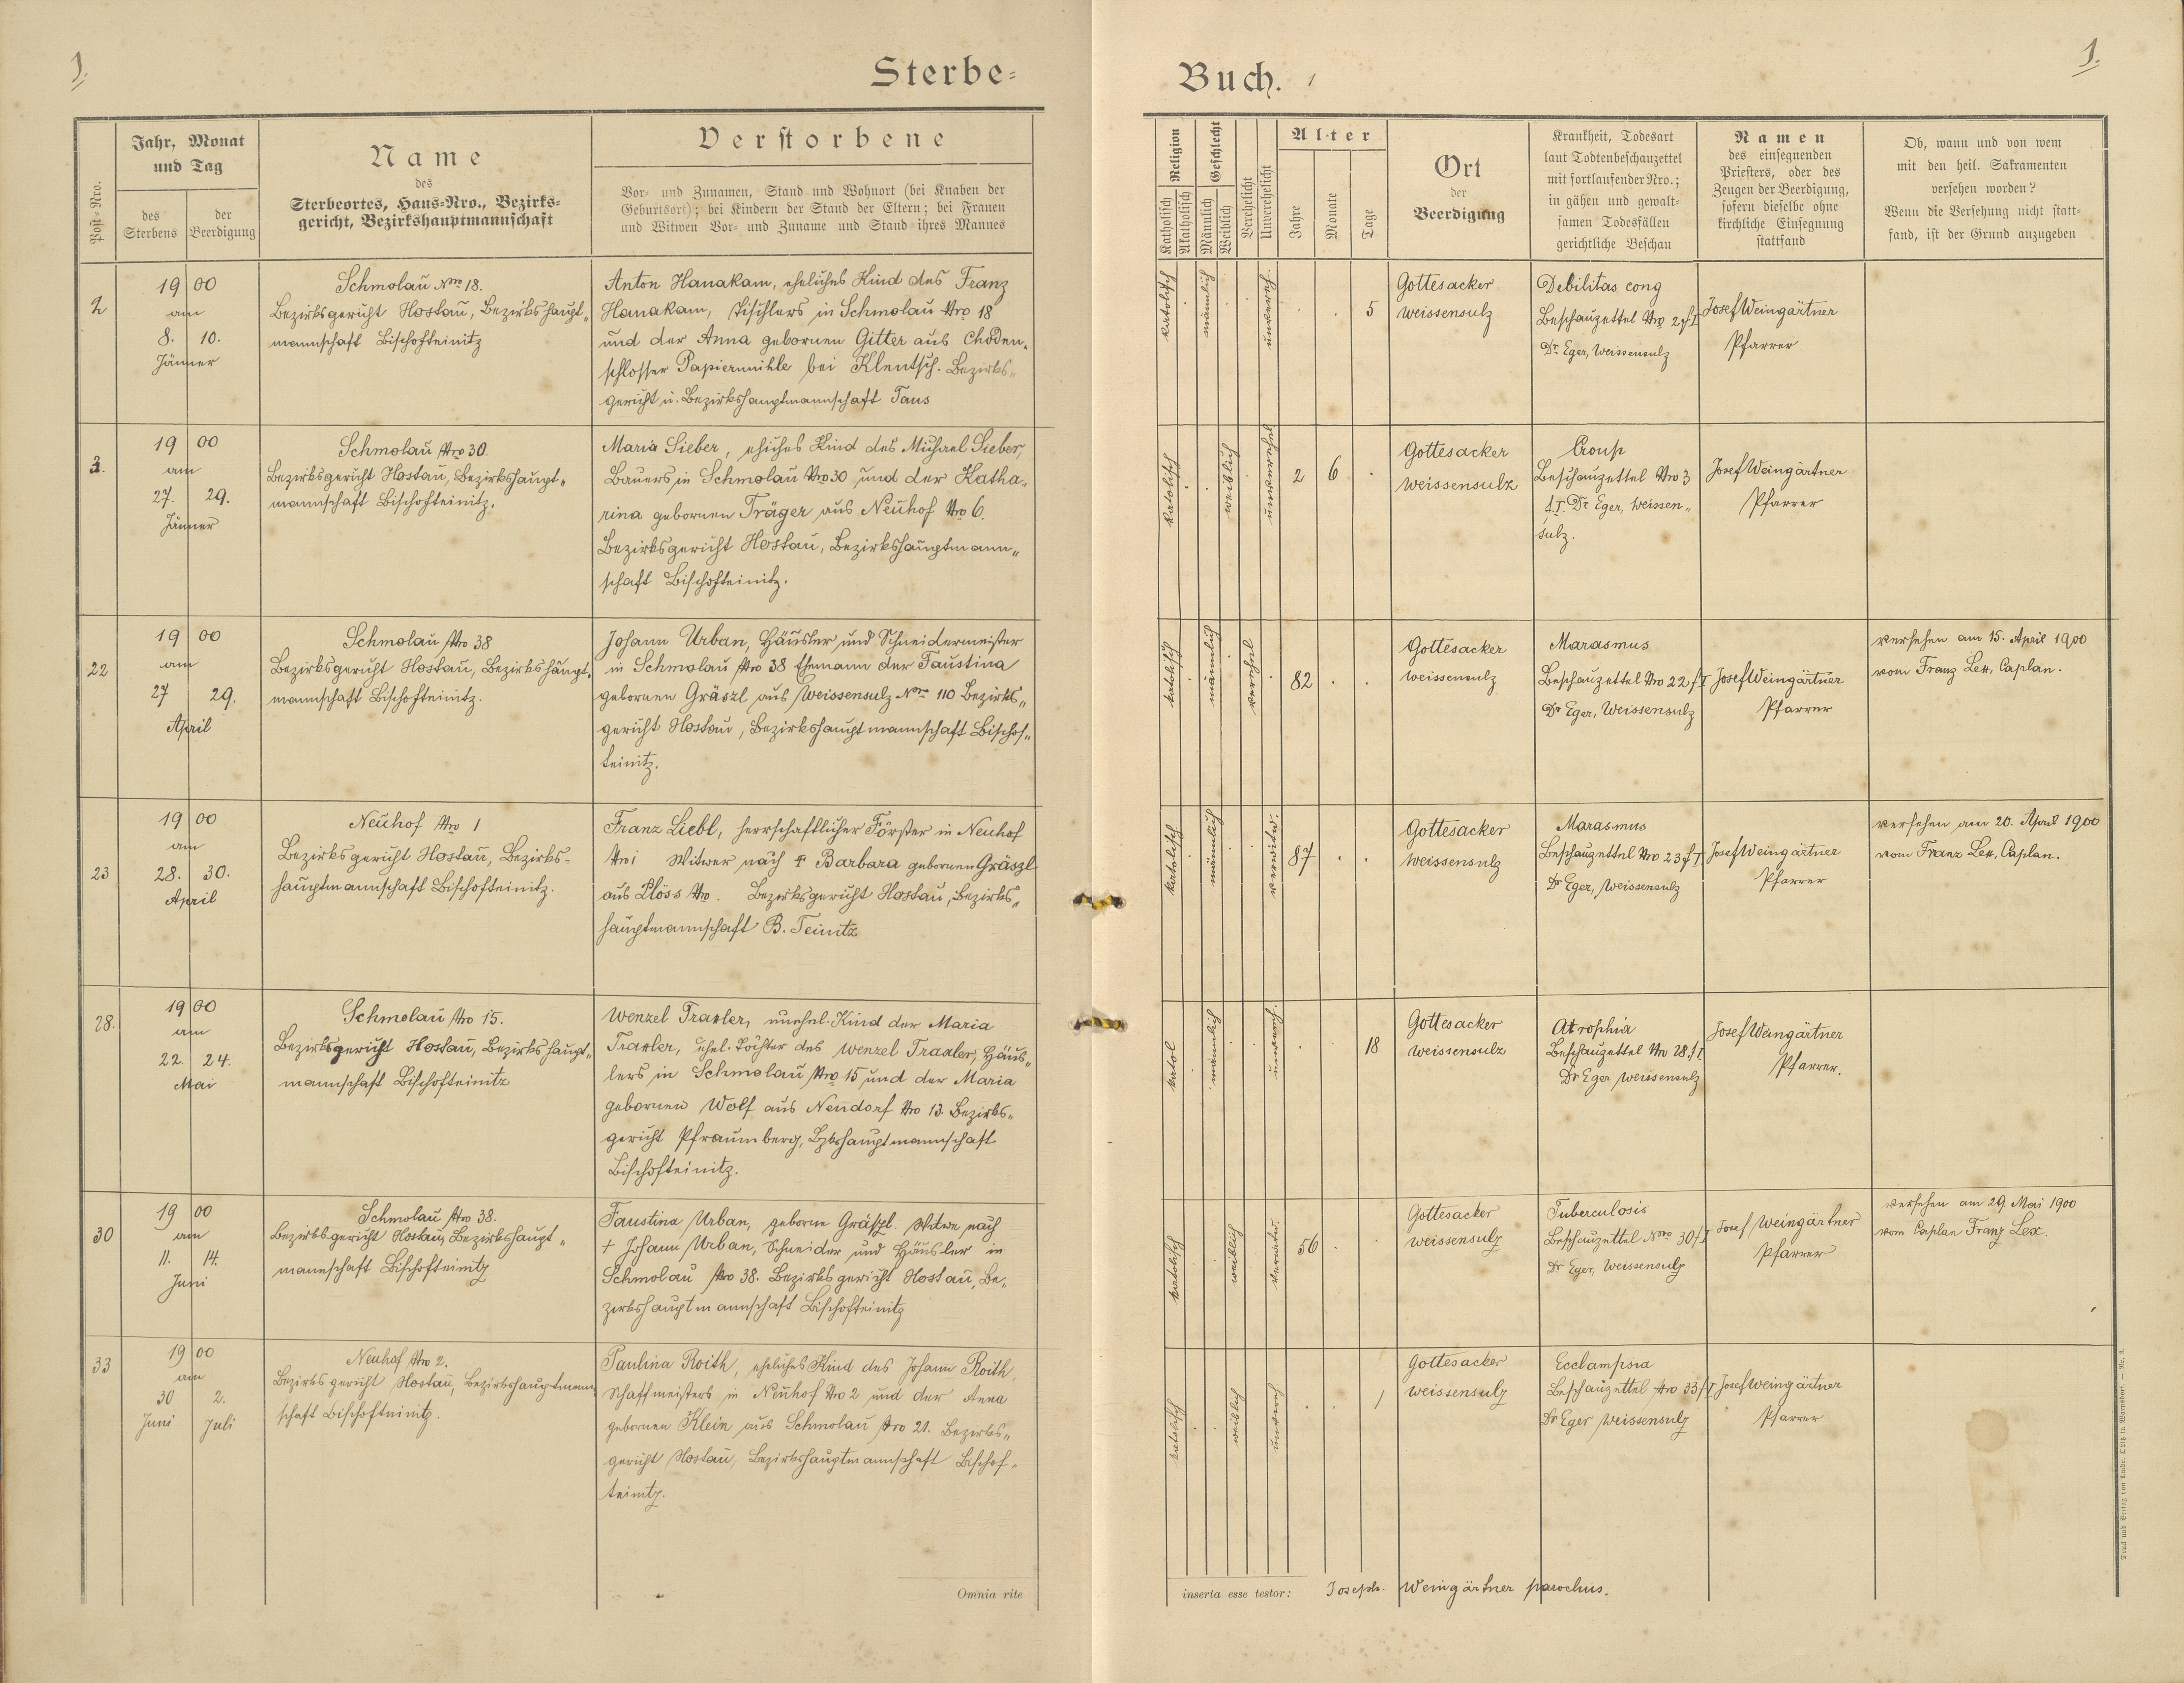 1.
Sterbe-
Post-Nro.
Jahr, Monat
und Tag
des
Sterbens
der
Beerdigung
Name
des
Sterbeortes, Haus-Nro., Bezirks-
gericht, Bezirkshauptmannschaft
Verstorbene
Vor- und Zunamen, Stand und Wohnort (bei Knaben der
Geburtsort); bei Kindern der Stand der Eltern; bei Frauen
und Witwen Vor- und Zuname und Stand ihres Mannes
2
19 00
am
8. 10.
Jänner
Schmolau Nro 18.
Bezirksgericht Hostau, Bezirkshaupt„
mannschaft Bischofteinitz
Anton Hanakam, eheliches Kind des Franz
Hanakam, Tischlers in Schmolau Nro 18
und der Anna gebornen Gitter aus Choden„
schlosser Papiermühle bei Klentsch. Bezirks„
gericht u. Bezirkshauptmannschaft Taus
3.
19 00
am
27. 29.
Jänner
Schmolau Nro 30.
Bezirksgericht Hostau, Bezirkshaupt„
mannschaft Bischofteinitz.
Maria Sieber, ehliches Kind des Michael Sieber,
Bauers in Schmolau Nro 30 und der Katha„
rina gebornen Träger aus Neuhof Nro 6.
Bezirksgericht Hostau, Bezirkshauptmann„
schaft Bischofteinitz.
22
19 00
am
27 29.
April
Schmolau Nro 38
Bezirksgericht Hostau, Bezirkshaupt„
mannschaft Bischofteinitz.
Johann Urban, Häusler und Schneidermeister
in Schmolau Nro 38 Ehemann der Faustina
gebornen Gräszl aus Weissensulz Nro 110 Bezirks„
gericht Hostau, Bezirkshauptmannschaft Bischof„
teinitz.
23
19 00
am
28. 30.
April
Neuhof Nro 1
Bezirksgericht Hostau, Bezirks-
hauptmannschaft Bischofteinitz.
Franz Liebl, herrschaftlicher Förster in Neuhof
Nro 1 Witwer nach † Barbara gebornen Gräszl
aus Plöss Nro . Bezirksgericht Hostau, Bezirks„
hauptmannschaft B. Teinitz
28.
19 00
am
22. 24.
Mai
Schmolau Nro 15.
Bezirksgericht Hostau, Bezirkshaupt„
mannschaft Bischofteinitz
Wenzel Traxler, unehel. Kind der Maria
Traxler, ehel. Tochter des Wenzel Traxler, Häus„
lers in Schmolau Nro 15 und der Maria
gebornen Wolf aus Neudorf Nro 13. Bezirks„
gericht Pfraumberg, Bzkshauptmannschaft
Bischofteinitz.
30
19 00
am
11. 14.
Juni
Schmolau Nro 38.
Bezirksgericht Hostau, Bezirkshaupt„
mannschaft Bischofteinitz
Faustina Urban, geborne Gräszl. Witwe nach
† Johann Urban, Schneider und Häusler in
Schmolau Nro 38. Bezirksgericht Hostau, Be„
zirkshauptmannschaft Bischofteinitz
33
19 00
am
30 2.
Juni Juli
Neuhof Nro 2.
Bezirksgericht Hostau, Bezirkshauptmann
schaft Bischofteinitz.
Paulina Roith, eheliches Kind des Johann Roith,
Schaffmeisters in Neuhof Nro 2 und der Anna
gebornen Klein aus Schmolau Nro 21. Bezirks„
gericht Hostau, Bezirkshauptmannschaft Bischof„
teinitz.
Omnia rite
Buch. 1
1.
Religion
Katholisch
Akatholisch
Geschlecht
Männlich
Weiblich
Verehelicht
Unverehelicht
Alter
Jahre
Monate
Tage
Ort
der
Beerdigung
Krankheit, Todesart
laut Todtenbeschauzettel
mit fortlaufender Nro.;
in gähen und gewalt-
samen Todesfällen
gerichtliche Beschau
Namen
des einsegnenden
Priesters, oder des
Zeugen der Beerdigung,
sofern dieselbe ohne
kirchliche Einsegnung
stattfand
Ob, wann und von wem
mit den heil. Sakramenten
versehen worden?
Wenn die Versehung nicht statt-
fand, ist der Grund anzugeben
katolisch
männlich
unvereh.
5
Gottesacker
Weissensulz
Debilitas cong
Beschauzettel Nro 2 f I
Dr. Eger, Weissensulz
Josef Weingärtner
Pfarrer
katolisch
weiblich
unverehel
2 6
Gottesacker
Weissensulz
Croup
Beschauzettel Nro 3
f. I. Dr Eger, Weissen„
sulz.
Josef Weingärtner
Pfarrer
katolisch
männlich
verehel
82
Gottesacker
Weissensulz
Marasmus
Beschauzettel Nro 22 f I
Dr Eger, Weissensulz
Josef Weingärtner
Pfarrer
versehen am 15. April 1900
vom Franz Lex, Caplan.
katolisch
männlich
verwitw.
87
Gottesacker
Weissensulz
Marasmus
Beschauzettel Nro 23 f I
Dr Eger, Weissensulz
Josef Weingärtner
Pfarrer
versehen am 20. April 1900
vom Franz Lex, Caplan.
katol
männlich
unvereh.
18
Gottesacker
Weissensulz
Atrophia
Beschauzettel Nro 28 f I
Dr Eger Weissensulz
Josef Weingärtner
Pfarrer.
katolisch
weiblich
verwitw.
56
Gottesacker
Weissensulz
Tuberculosis
Beschauzettel Nro 30 f I
Dr Eger, Weissensulz
Josef Weingärtner
Pfarrer
versehen am 29. Mai 1900
vom Caplan Franz Lex.
katolisch
weiblich
unvereh
1
Gottesacker
Weissensulz
Ecclampsia
Beschauzettel Nro 33 f I
Dr Eger Weissensulz
Josef Weingärtner
Pfarrer
inserta esse testor: Joseph. Weingärtner parochus.
Druck und Verlag von Ambr. Opitz in Warnsdorf. — Nr. 3.